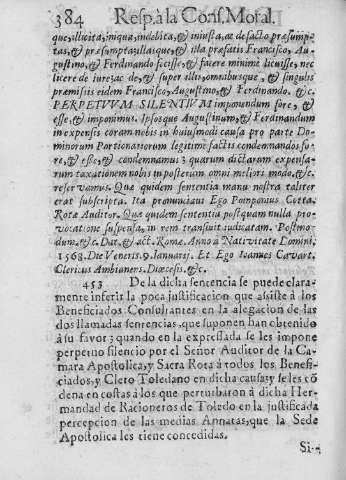 384 Resp. à la Cons. Moral.
que, illicita, iniqua, indebita, & iniusta, ac de facto præsump-
tas, & præsumpta; illasque, & illa præfatis Francisco, Au-
gustino, & Ferdinando fecisse, & facere minimè licuisse, nec
licere de iure; ac de, & super illis, omnibusque, & singulis
præmissis eisdem Francisco, Augustino, & Ferdinando. &c.
PERPETVVM SILENTIVM imponendum fore, &
esse, & imponimus. Ipsosque Augustinum, & Ferdinandum
in expensis coram nobis in huiusmodi causa pro parte Do-
minorum Portionariorum legitimè factis condemnandos fo-
re, & esse, & condemnamus; quarum dictarum expensa-
rum taxationem nobis in posterum omni meliori modo, &c.
reservamus. Qua quidem sententia manu nostra taliter
erat subscripta. Ita pronunciavi Ego Pomponius Cotta
Rotæ Auditor. Qua quidem sententia postquam nulla pro-
vocatione suspensa, in rem transivit iudicatam. Postmo-
dum. &c. Dat, & act. Romæ. Anno à Nativitate Domini;
1568. Die Veneris. 9. Ianuarij. Et Ego Ioannes Cavart.
Clericus Ambianens. Diœcesis. &c.
453 De la dicha sentencia se puede clara-
mente inferir la poca justificacion que assiste à los
Beneficiados Consultantes en la alegacion de las
dos llamadas sentencias, que suponen han obtenido
à su favor; quando en la expressada se les impone
perpetuo silencio por el Señor Auditor de la Ca-
mara Apostolica, y Sacra Rota à todos los Benefi-
ciados, y Clero Toledano en dicha causa; y se les cõ
dena en costas à los que perturbaron à dicha Her-
mandad de Racioneros de Toledo en la justificada
percepcion de las medias Annatas, que la Sede
Apostolica les tiene concedidas.
Si-